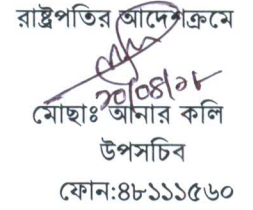 রাষ্ট্রপতির আদেশক্রমে
২০/০৪/১৮
মোছাঃ আনার কলি
উপসচিব
ফোন:৪৮১১১৫৬০